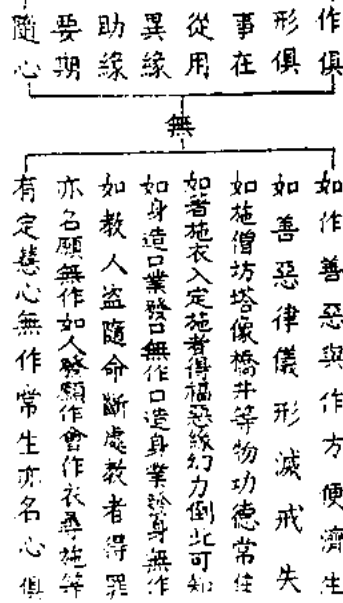 作俱
形俱
事在
從用
異緣
助緣
要期
隨心
無
如作善惡與作方便濟生
如善惡律儀形滅戒失
如施僧坊塔像橋井等物功德常住
如著施衣入定施者得福惡緣此可知
如身造口業發口無作口造身業發身無作
如教人盜隨命斷處教者得罪
亦名願無作如人發願作會作衣尋施等
有定慧心無作常生亦名心俱